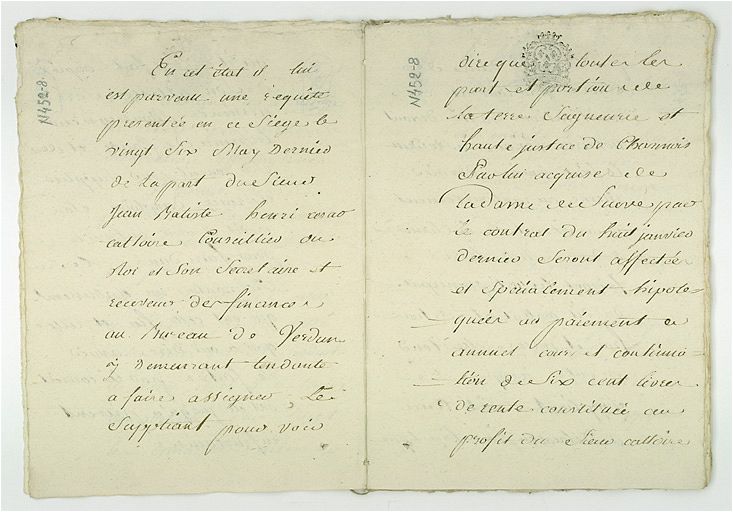 N452-8
En cet état il lui
est parvenu une requête
presentée en ce Siege le
vingt Six May Dernier
de la part du Sieur
Jean Batiste henri
cattoire Conseillier du
Roi et Son Secretaire et
receveur des finances
au Bureau de Verdun
y Demeurant tendante
a faire assigner Le
Suppliant pour voir
N452-8
dire que toutes les
part et portion de
la terre Seigneurie et
haute justice de
par lui acquise de
la dame de pas
le contrat du huit janvier
dernier Seront affectée
et Spécialement hipote-
quée au paiement
annuel cours et continua-
tion de Six cent livres
de rente constituée au
profit du Sieur cattoire